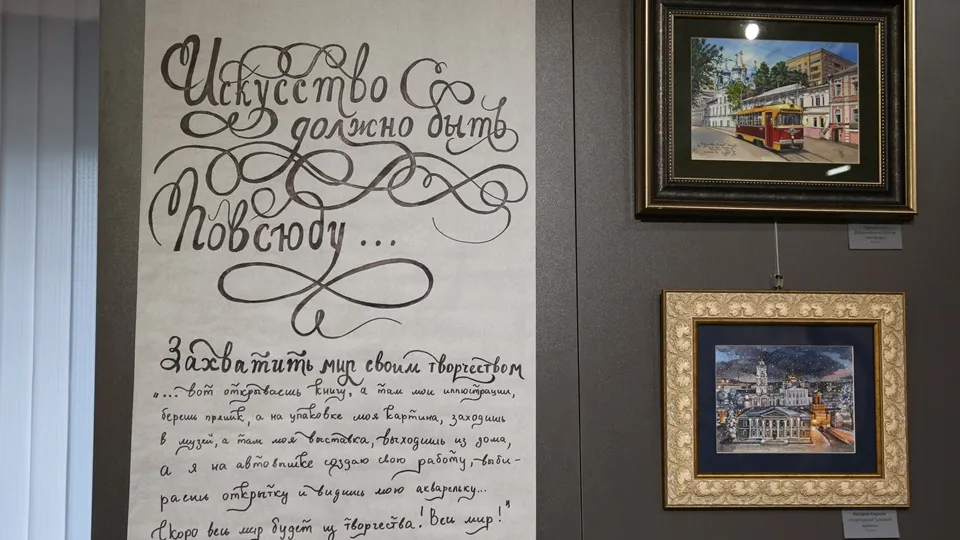 Искусство
должно быть
Повсюду...
Захватить мир своим творчеством
"... вот открываешь книгу, а там мои иллюстрации,
берешь пряник, а на упаковке моя картина, заходишь
в музей, а там моя выставка, выходишь из дома,
а я на автовышке создаю свою работу, выби-
раешь открытку и видишь мою акварельку...
Скоро весь мир будет из творчества! Весь мир!"